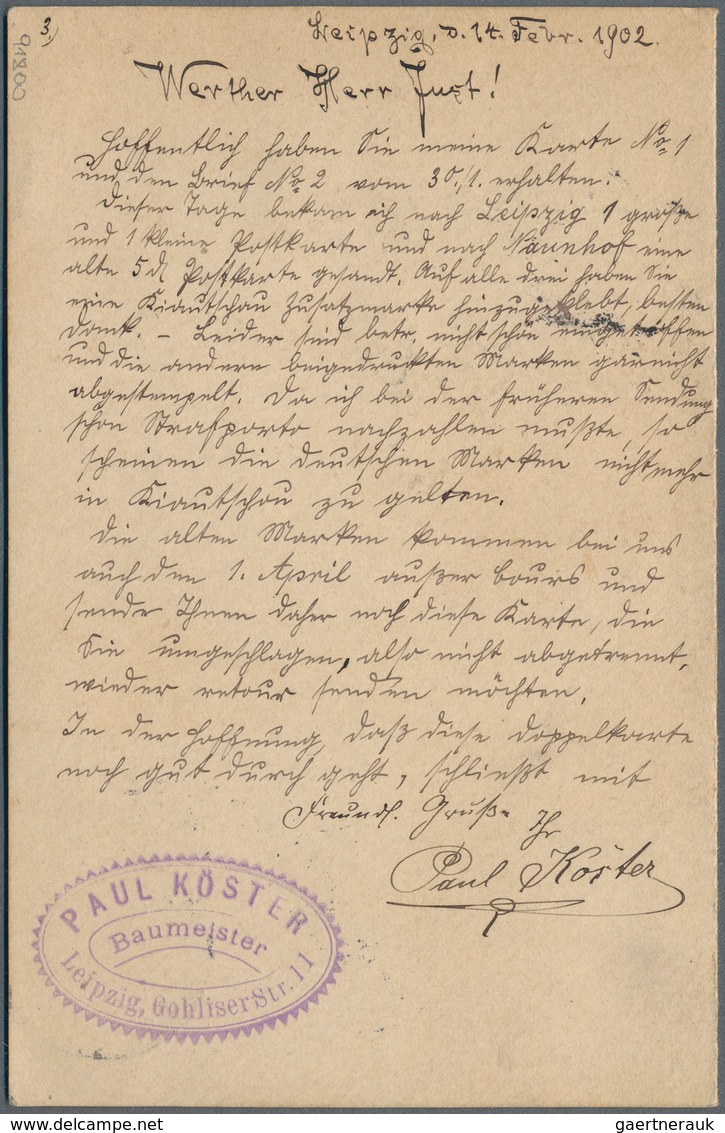 3.)
91800
Leipzig, d. 14. Febr. 1902.
Werther Herr Just!
Hoffentlich haben Sie meine Karte No 1
und den Brief No 2 vom 30./1. erhalten.
Dieser Tage bekam ich nach Leipzig 1 große
und 1 kleine Postkarte und nach Naunhof eine
alte 5 ₰ Postkarte gesandt. Auf alle drei haben Sie
eine Kiautschau Zusatzmarke hinzugeklebt, besten
Dank. – Leider sind betr. nicht schön eingetroffen
und die andern beigedruckten Marken garnicht
abgestempelt. Da ich bei der früheren Sendung
schon Strafporto nachzahlen mußte, so
scheinen die deutschen Marken nicht mehr
in Kiautschou zu gelten.
Die alten Marken kommen bei uns
auch den 1. April außer Cours und
sende Ihnen daher noch diese Karte, die
Sie umgeschlagen, also nicht abgetrennt,
wieder retour senden möchten.
In der Hoffnung, daß diese Doppelkarte
noch gut durch geht, schließt mit
Freundl. Gruße Ihr
Paul Köster
PAUL KÖSTER
Baumeister
Leipzig, Gohliser Str. 11
gaertnerauk